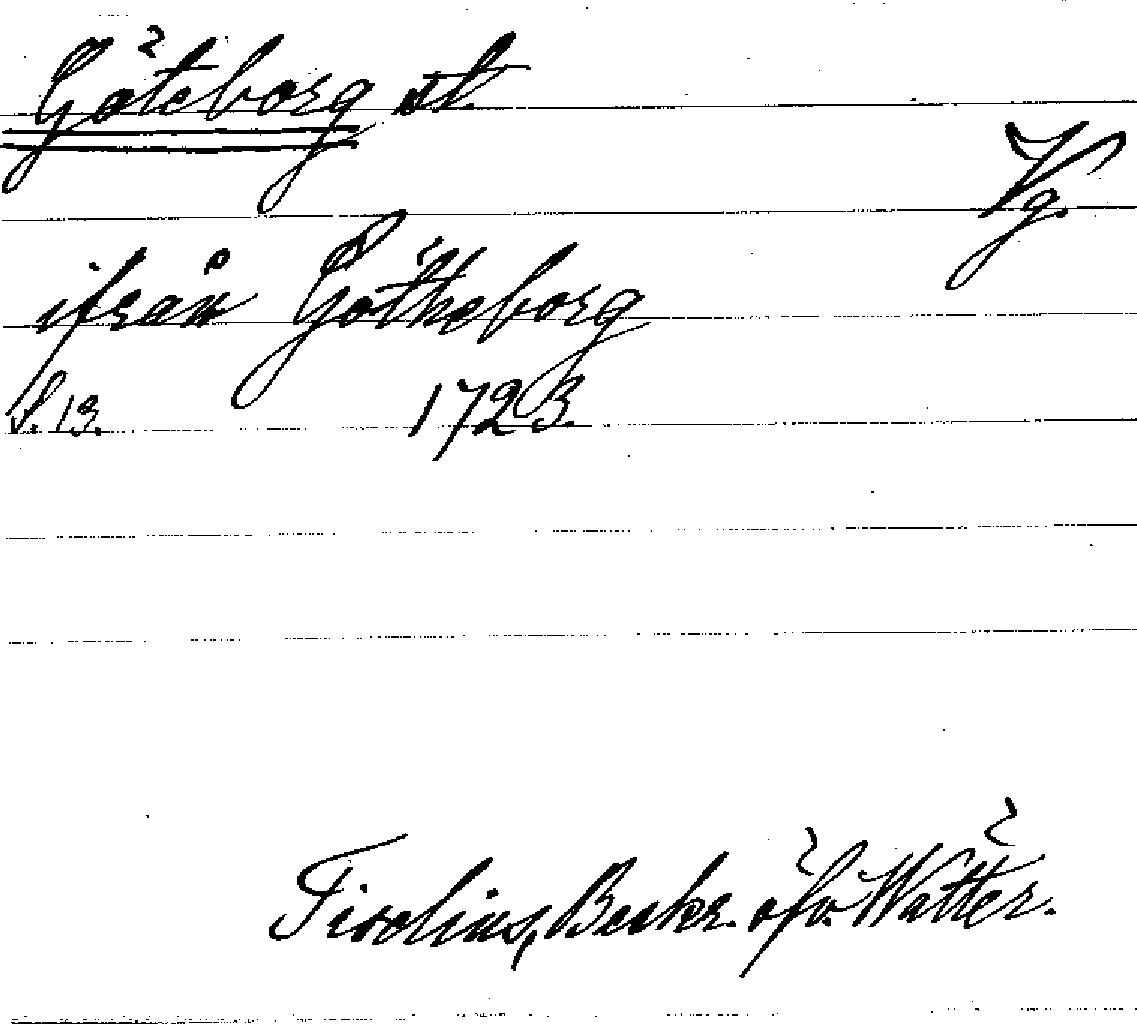 Göteborg st.
Vg.
ifrån Götheborg
S. 13. 1723.
Tiselius, Beskr. öfv. Wätter.